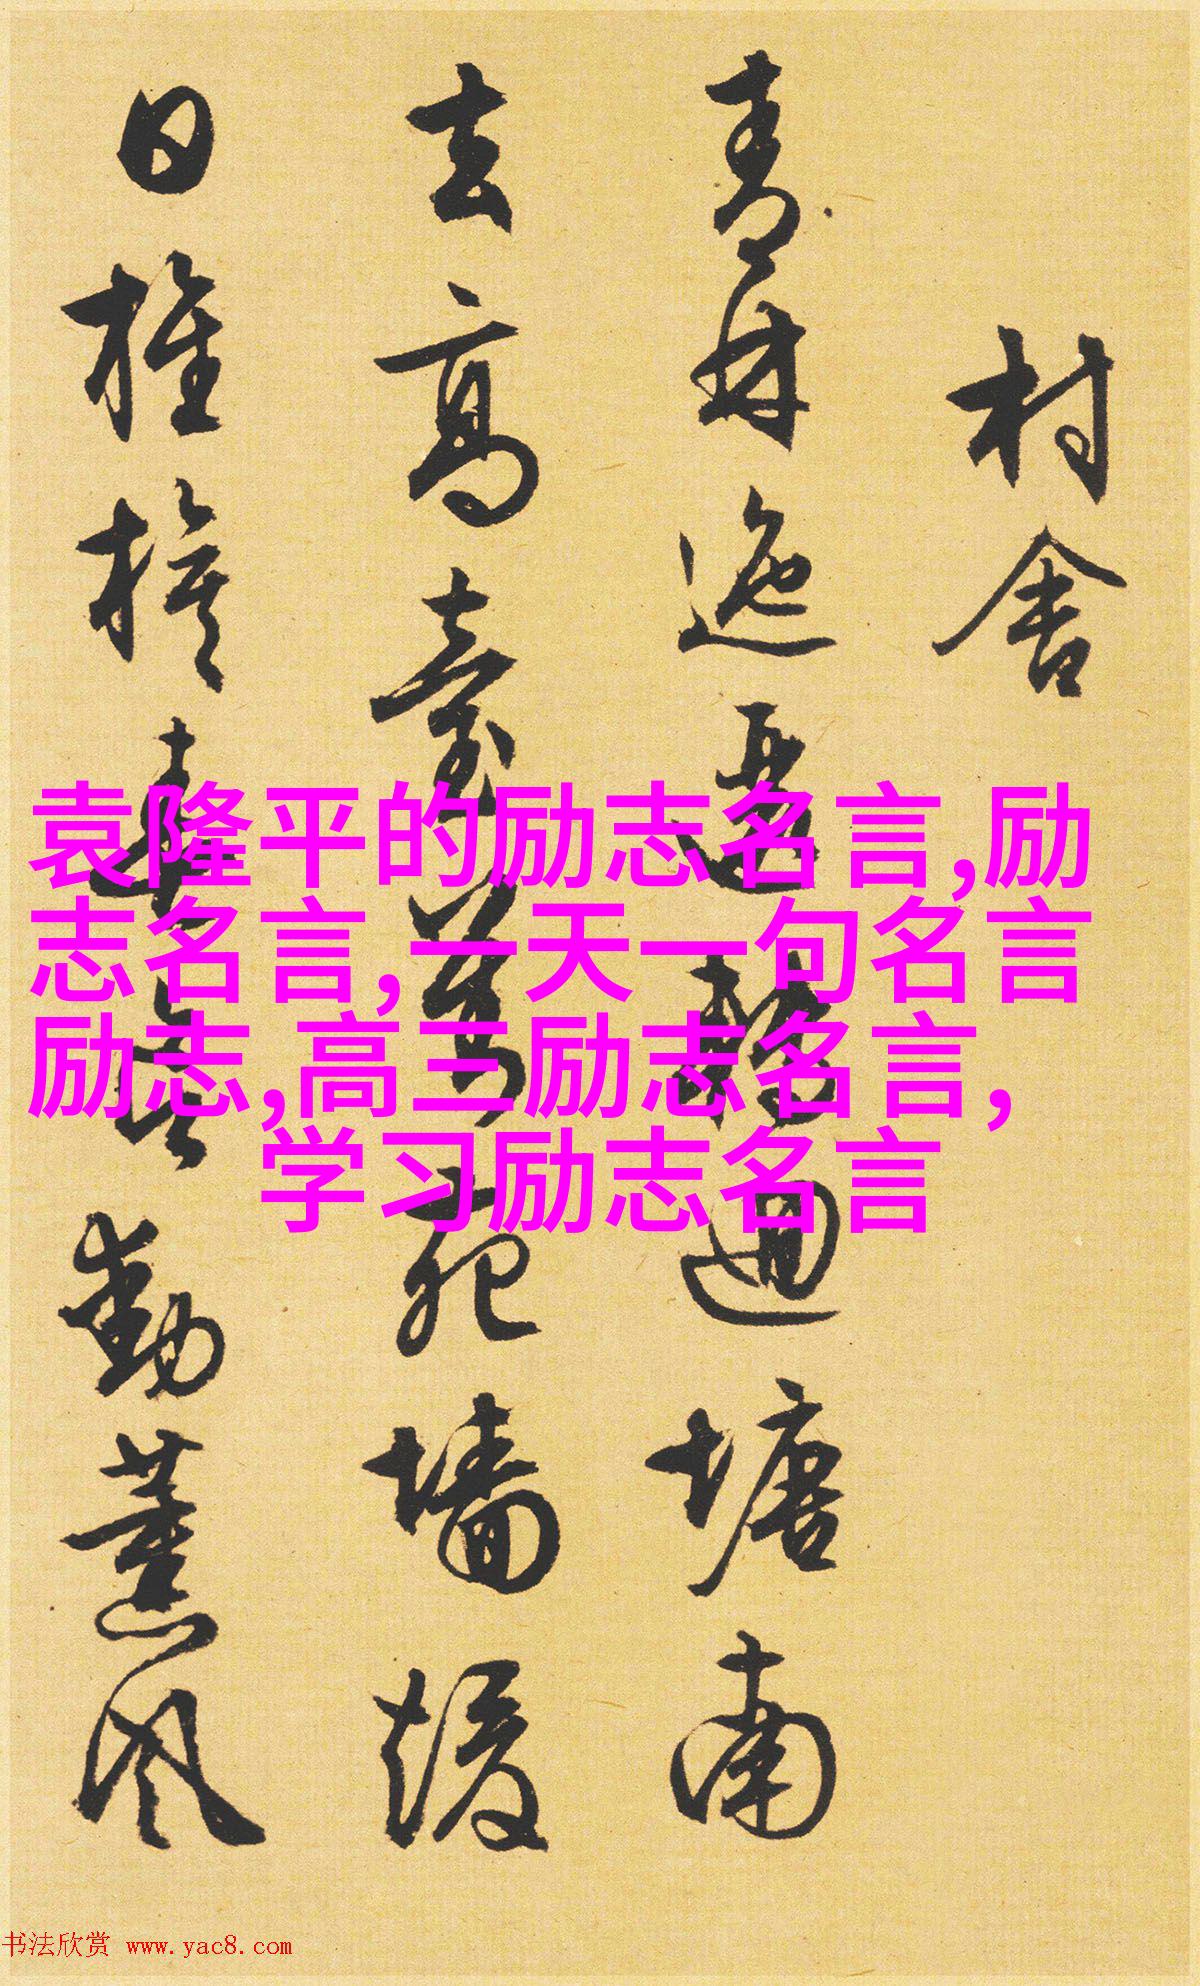 村舍
青林迤逦转回塘南
去高台万花墙缓
日推移春
勤薰风
袁隆平的励志名言,励
志名言,一天一句名言
励志,高三励志名言,
学习励志名言
书法欣赏 www.yac8.com